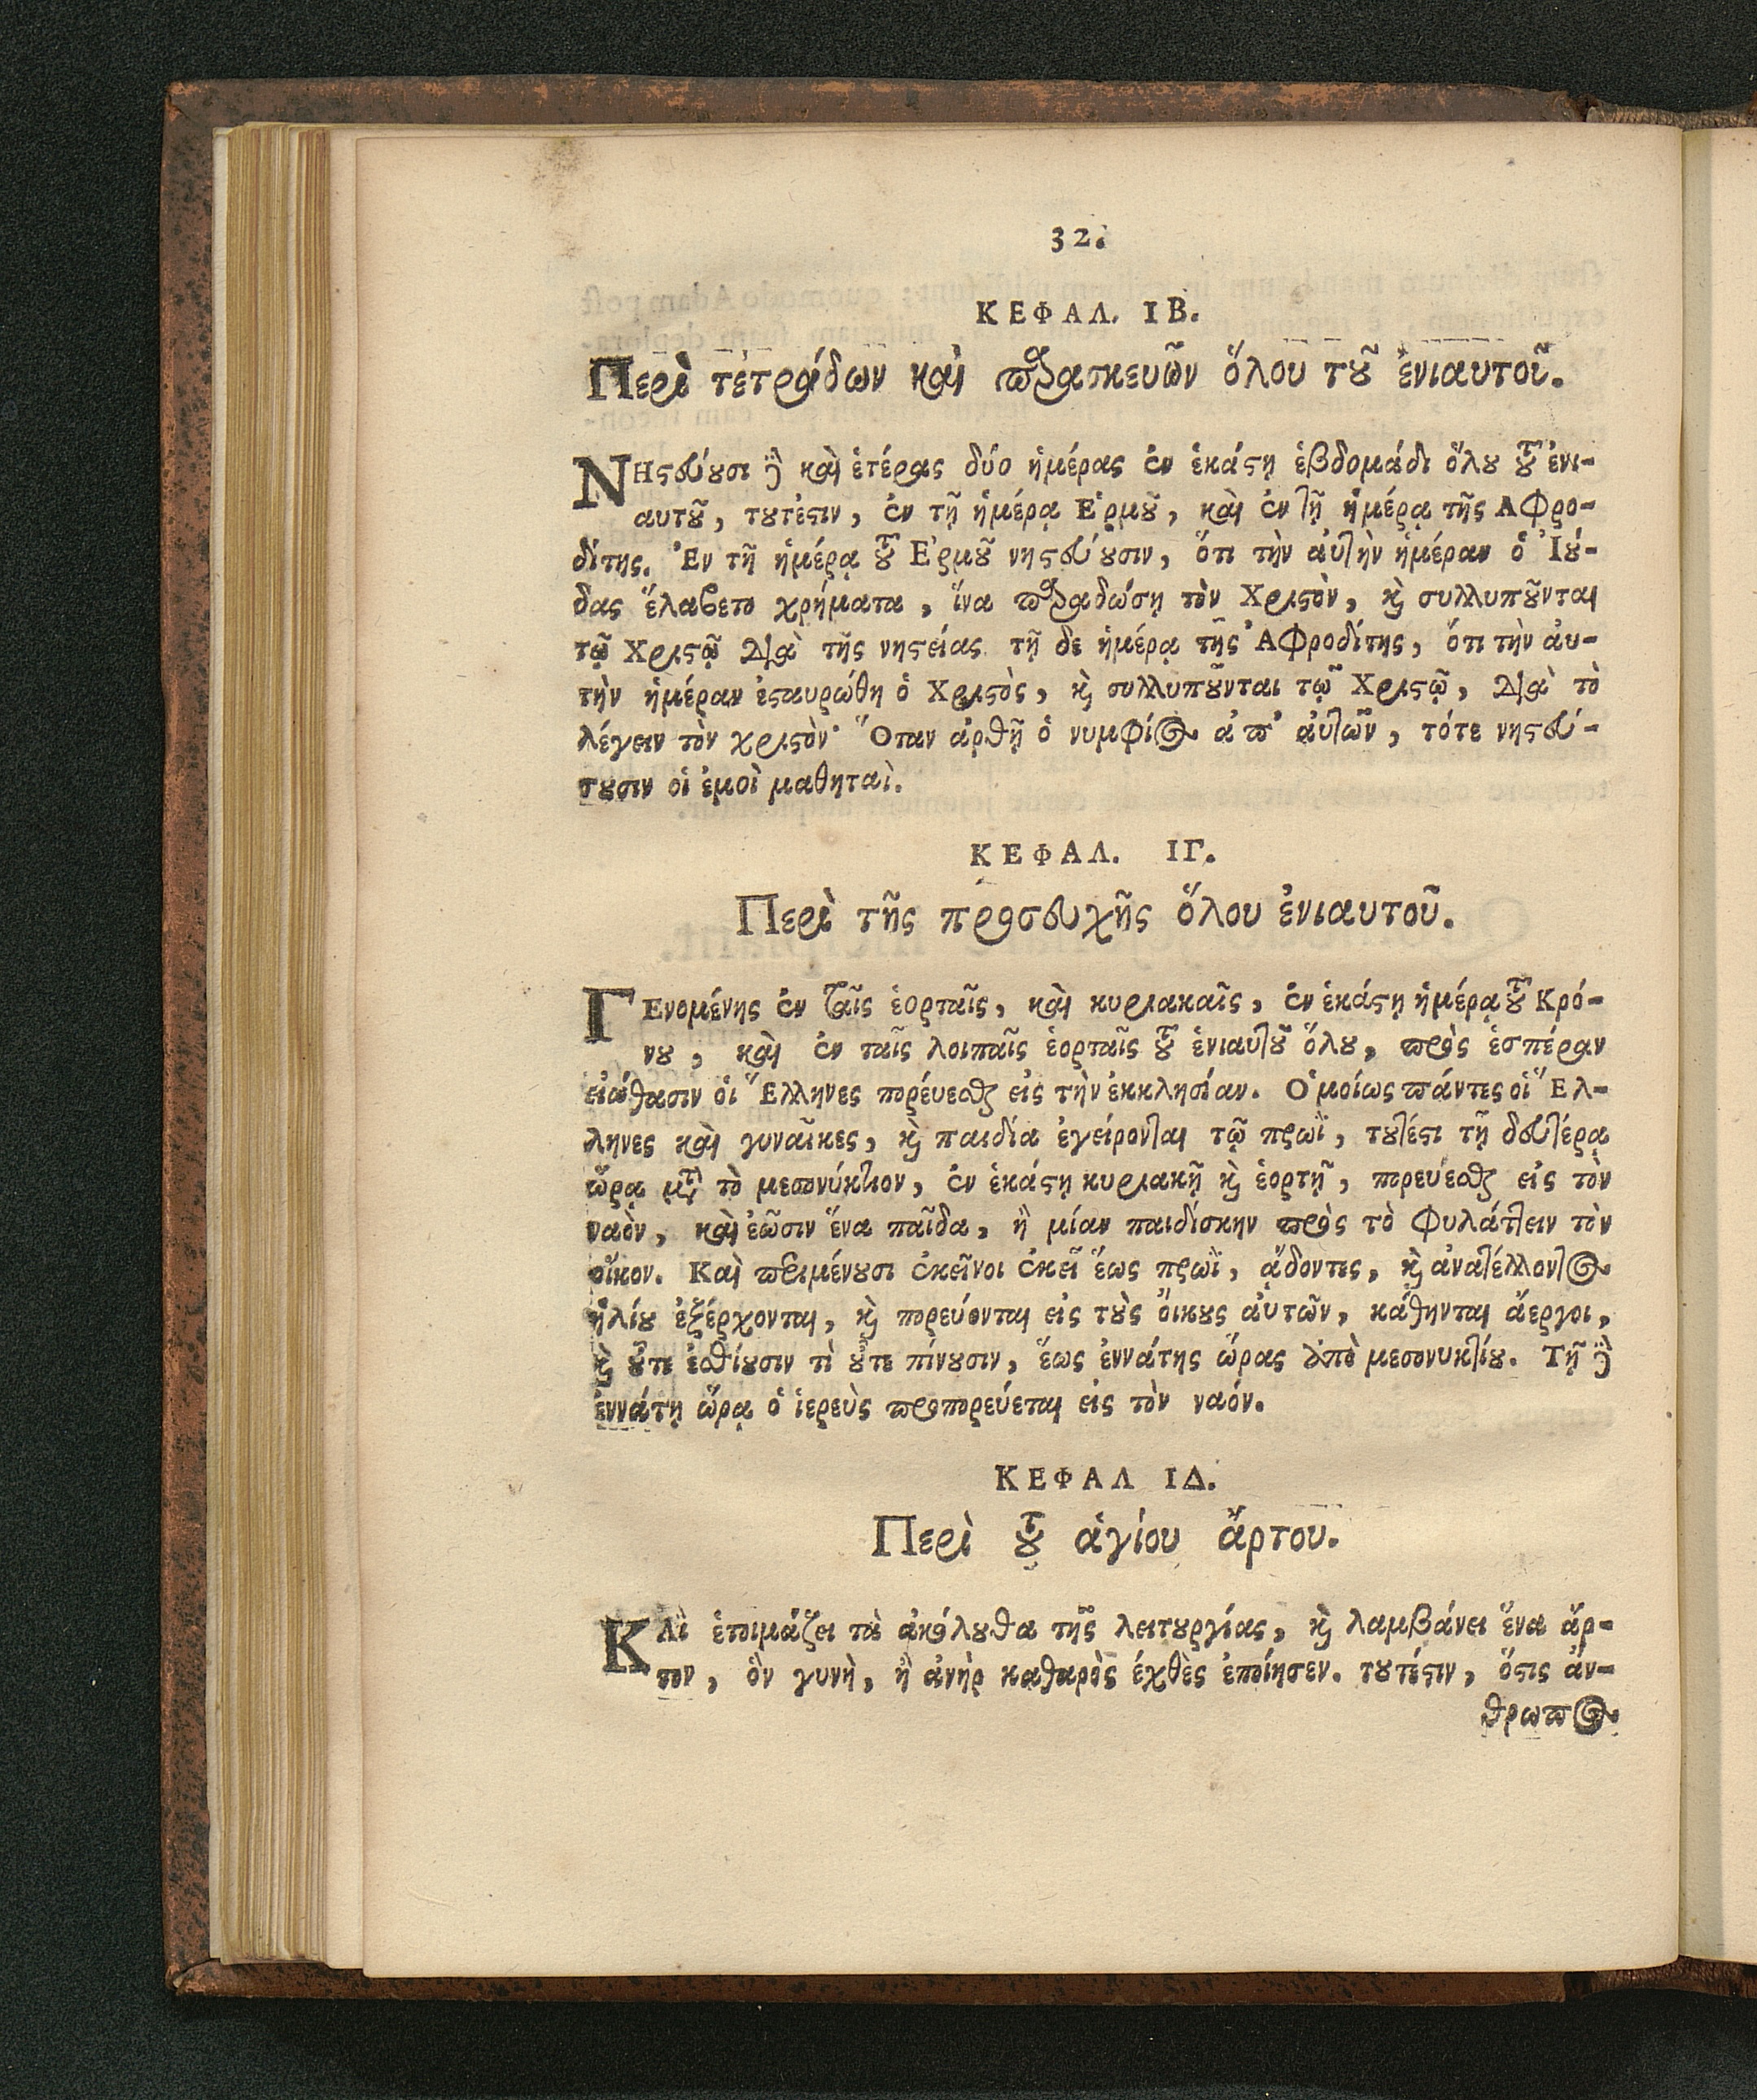 32.
ΚΕΦΑΛ. ΙΒ.
Περὶ τετράδων καὶ παρασκευῶν ὅλου τοῦ ἐνιαυτοῦ.
ΝΗστεύουσι δὲ καὶ ἑτέρας δύο ἡμέρας ἐν ἑκάστῃ ἑβδομάδι ὅλου τοῦ ἐνι-
αυτοῦ, τουτέστιν, ἐν τῇ ἡμέρᾳ Ἑρμοῦ, καὶ ἐν τῇ ἡμέρᾳ τῆς Αφρο-
δίτης. Ἐν τῇ ἡμέρᾳ τοῦ Ἑρμοῦ νηστεύουσιν, ὅτι τὴν ἀυτὴν ἡμέραν ὁ Ἰού-
δας ἔλαβετο χρήματα, ἵνα παραδώσῃ τὸν Χριστὸν, καὶ συλλυποῦνται
τῷ Χριστῷ διὰ τῆς νηστείας τῇ δε ἡμέρᾳ τῆς Ἀφροδίτης, ὅτι τὴν ἀυ-
τὴν ἡμέραν ἐσταυρώθη ὁ Χριστὸς, καὶ συλλυποῦνται τῷ Χριστῷ, διὰ τὸ
λέγειν τὸν χριστὸν· Ὅταν ἀρθῇ ὁ νυμφίος ἀπ' ἀυτῶν, τότε νηστεύ-
σουσιν οἱ ἐμοὶ μαθηταὶ.
ΚΕΦΑΛ. ΙΓ.
Περὶ τῆς προσευχῆς ὅλου ἐνιαυτοῦ.
ΓΕνομένης ἐν ταῖς ἑορταῖς, καὶ κυριακαῖς, ἐν ἑκάστῃ ἡμέρᾳ τοῦ Κρό-
νου, καὶ ἐν ταῖς λοιπαῖς ἑορταῖς τοῦ ἐνιαυτοῦ ὅλου, πρὸς ἑσπέραν
εἰώθασιν ὁι Ἕλληνες πορέυεσθαι εἰς τὴν ἐκκλησίαν. Ὁμοίως πάντες οἱ Ἕλ-
ληνες καὶ γυναῖκες, καὶ παιδία ἐγείρονται τῷ πρωῒ, τουτέστι τῇ δευτέρᾳ
ὥρᾳ μετὰ τὸ μεσονύκτιον, ἐν ἑκάστῃ κυριακῇ καὶ ἑορτῇ, πορεύεσθαι εἰς τὸν
ναὸν, καὶ ἐῶσιν ἕνα παῖδα, ἢ μίαν παιδίσκην πρὸς τὸ φυλάττειν τὸν
οἶκον. Καὶ περιμένουσι ἐκεῖνοι ἐκεῖ ἕως πρωῒ, ᾄδοντες, καὶ ἀνατέλλοντος
ἡλίου ἐξέρχονται, καὶ πορεύονται εἰς τοὺς ὄικους ἀυτῶν, κάθηνται ἄεργοι,
καὶ οὔτε ἐσθίουσιν τὶ οὔτε πίνουσιν, ἕως ἐννάτης ὥρας ἀπὸ μεσονυκτίου. Τῇ δὲ
ἐννάτῃ ὥρᾳ ὁ ἱερεὺς προπορεύεται εἰς τὸν ναόν.
ΚΕΦΑΛ ΙΔ.
Περὶ τοῦ ἁγίου ἄρτου.
ΚΑὶ ἑτοιμάζει τὰ ἀκόλουθα τῆς λειτουργίας, καὶ λαμβάνει ἕνα ἄρ-
τον, ὃν γυνὴ, ἢ ἀνὴρ καθαρὸς ἐχθὲς ἐποίησεν. τουτέστιν, ὅστις ἄν-
θρωπος